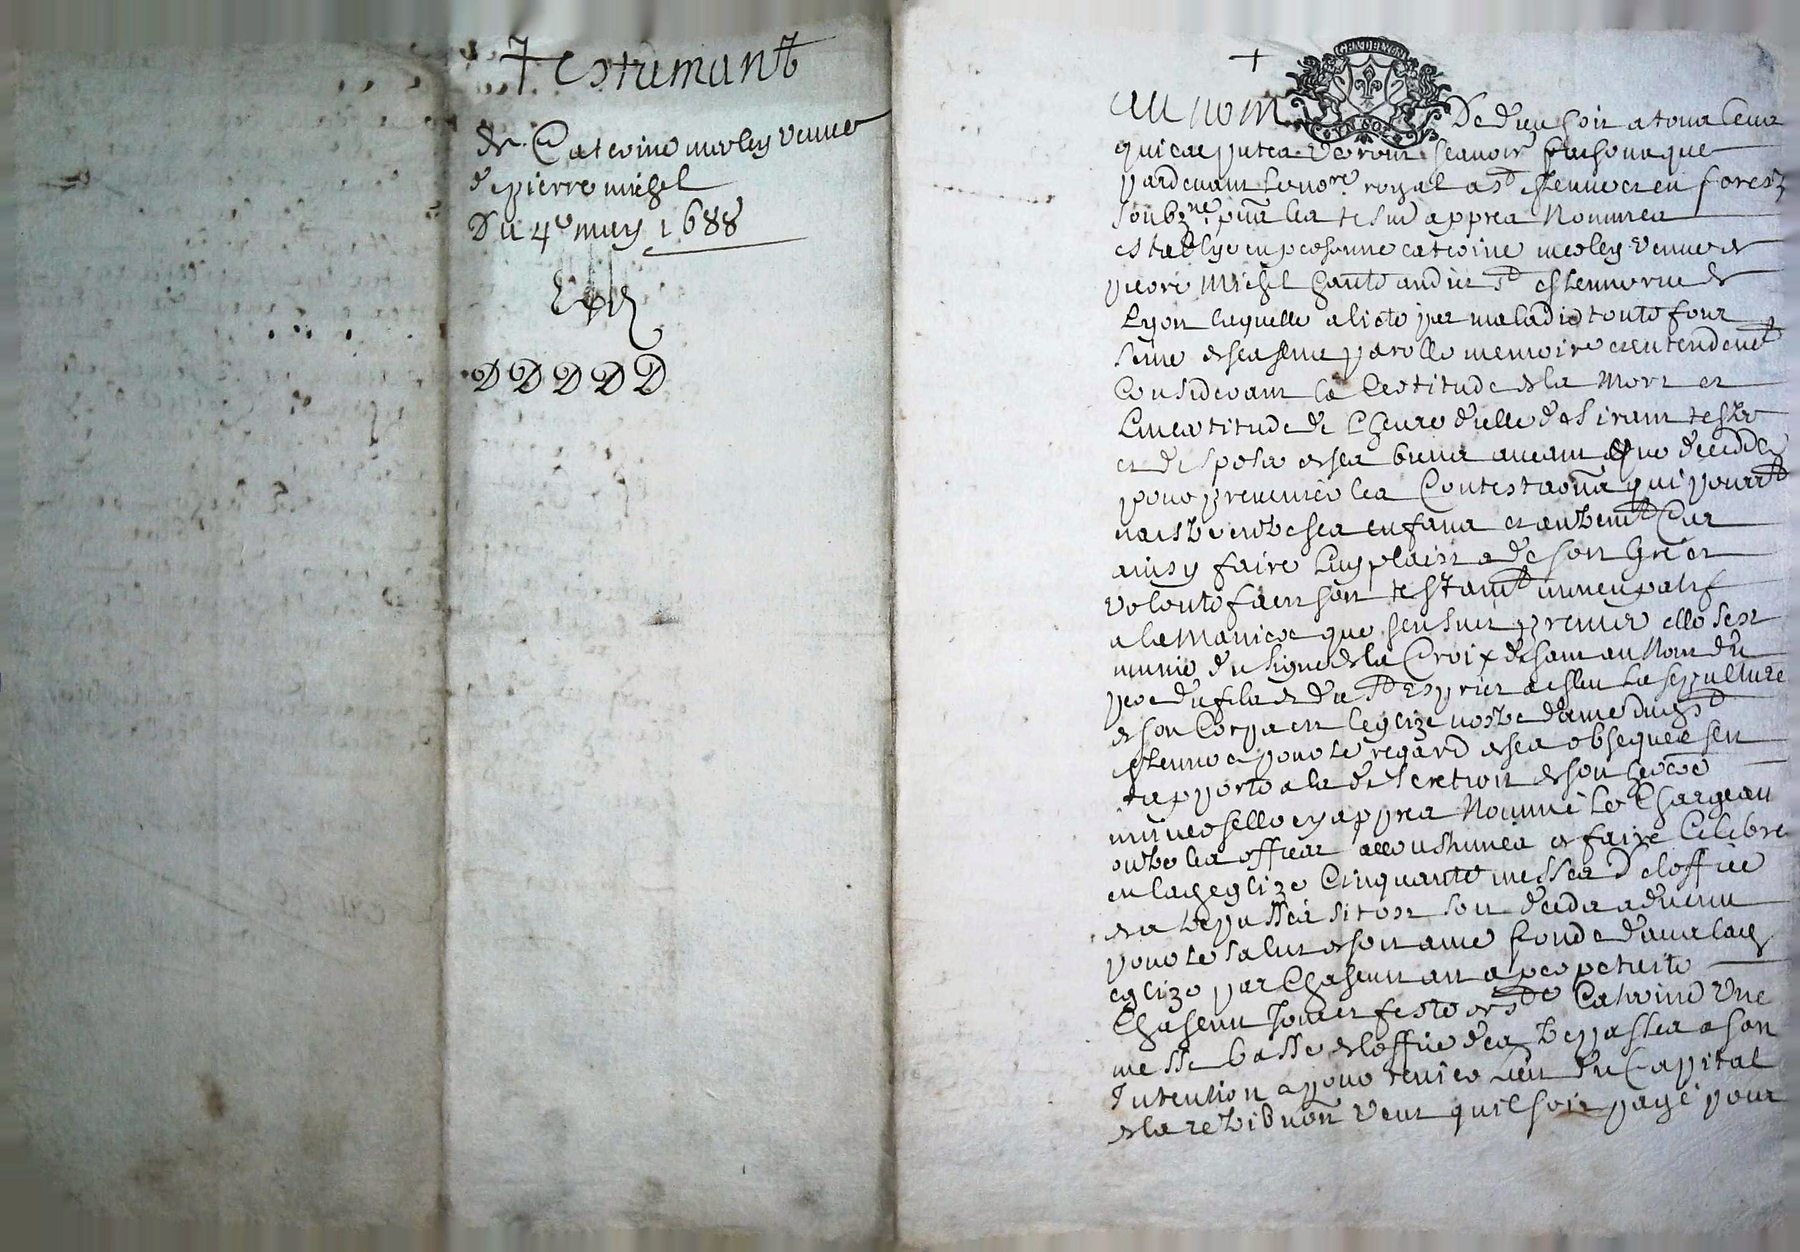 Testamant
de Caterine merley veuve
de pierre michel
Du 4e may 1688
D D D D D
GEN DE LYON
au nom De dieu soit a tous ceux
qui ces pntes verront scavoir faisons que
pardevant le nore royal a st Estienne en forestz
soubzne pnt les tesm appres Nommes
establye en personne caterine merley veuve de
pierre Michel hante audict st estienne rue de
Lyon laquelle alicte par maladie toutefois
saine de ses sens parolle memoire et entendemt
Considerant la Certitude de la Mort et
Lincertitude de Lheure dicelle desirant tester
et disposer de ses biens avant que decedder
pour prevenir les Contestaons qui pourrt
naistre entre ses enfans et autremt Car
ainsy faire Luy plaict a de son gre et
volonte faict son testamt nuncupatif
a la maniere que sensuit premier elle sest
munie du signe de la Croix disant au Nom du
pere du fils et du st Esprit a esleu La sepulture
de son Corps en leglize nostre dame dud st
Estienne et pour le regard de ses obseques sen
rapporte a la discretion de son here
universelle cy appres Nomme Le Chargeant
outre les offices accoustumes de faire Celebrer
en lad eglize Cinquante messes de loffice
des trepasses sitost son deceds advenu
pour le salut de son ame fonde dans lad
eglize par Chascun an a perpetuite
Chascun Jour et feste de ste Caterine Une
messe basse de loffice des trepasses a son
Intention et pour tenir lieu du Capital
de la retribuon veut quil soit paye pour